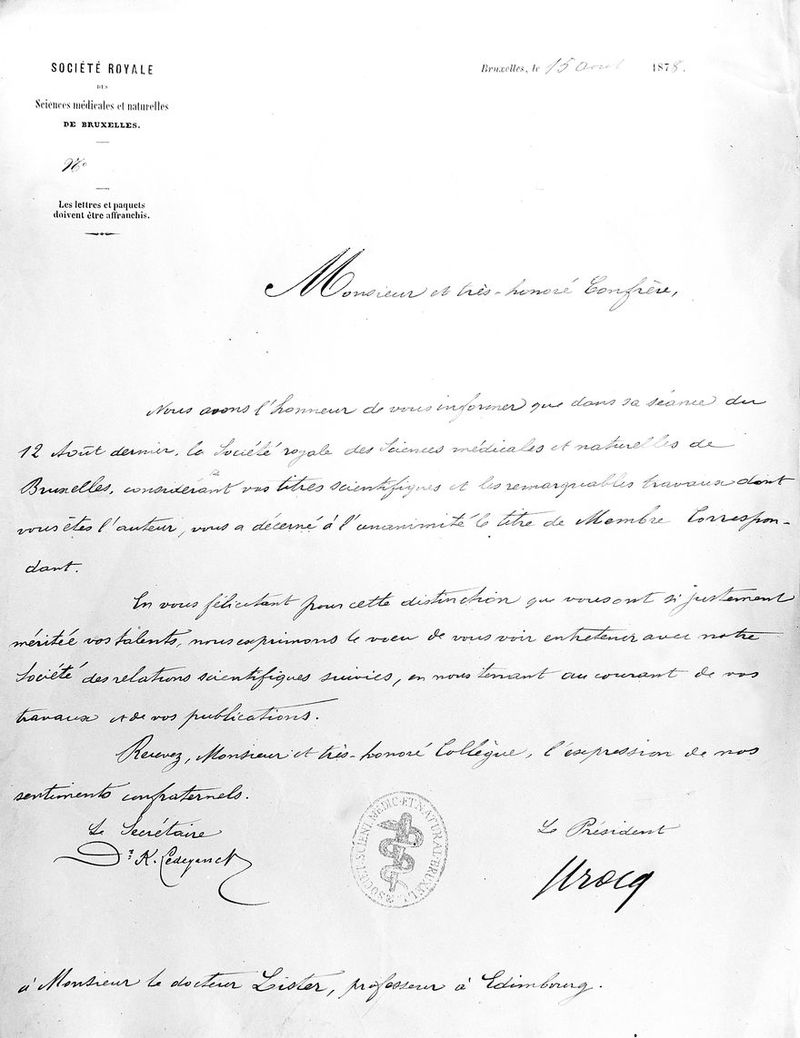 SOCIÉTÉ ROYALE
DES
Sciences médicales et naturelles
DE BRUXELLES.
No
Les lettres et paquets
doivent être affranchis.
Bruxelles, le 15 août 1878.
Monsieur et très-honoré Confrère,
Nous avons l'honneur de vous informer que dans sa séance du
12 Août dernier, la Société royale des Sciences médicales et naturelles de
Bruxelles, considérant vos titres scientifiques et les remarquables travaux dont
vous êtes l'auteur, vous a décerné à l'unanimité le titre de Membre Correspon-
dant.
En vous félicitant pour cette distinction que vous ont si justement
méritée vos talents, nous exprimons le voeu de vous voir entretenir avec notre
Société des relations scientifiques suivies, en nous tenant au courant de vos
travaux et de vos publications.
Recevez, Monsieur et très-honoré Collègue, l'expression de nos
sentiments confraternels.
Le Secrétaire
Dr K. Ledeganck
SOCIET. SCIENT. MEDIC. ET NATURAL. BRUXEL.
Le Président
Crocq
à Monsieur le docteur Lister, professeur à Edimbourg.